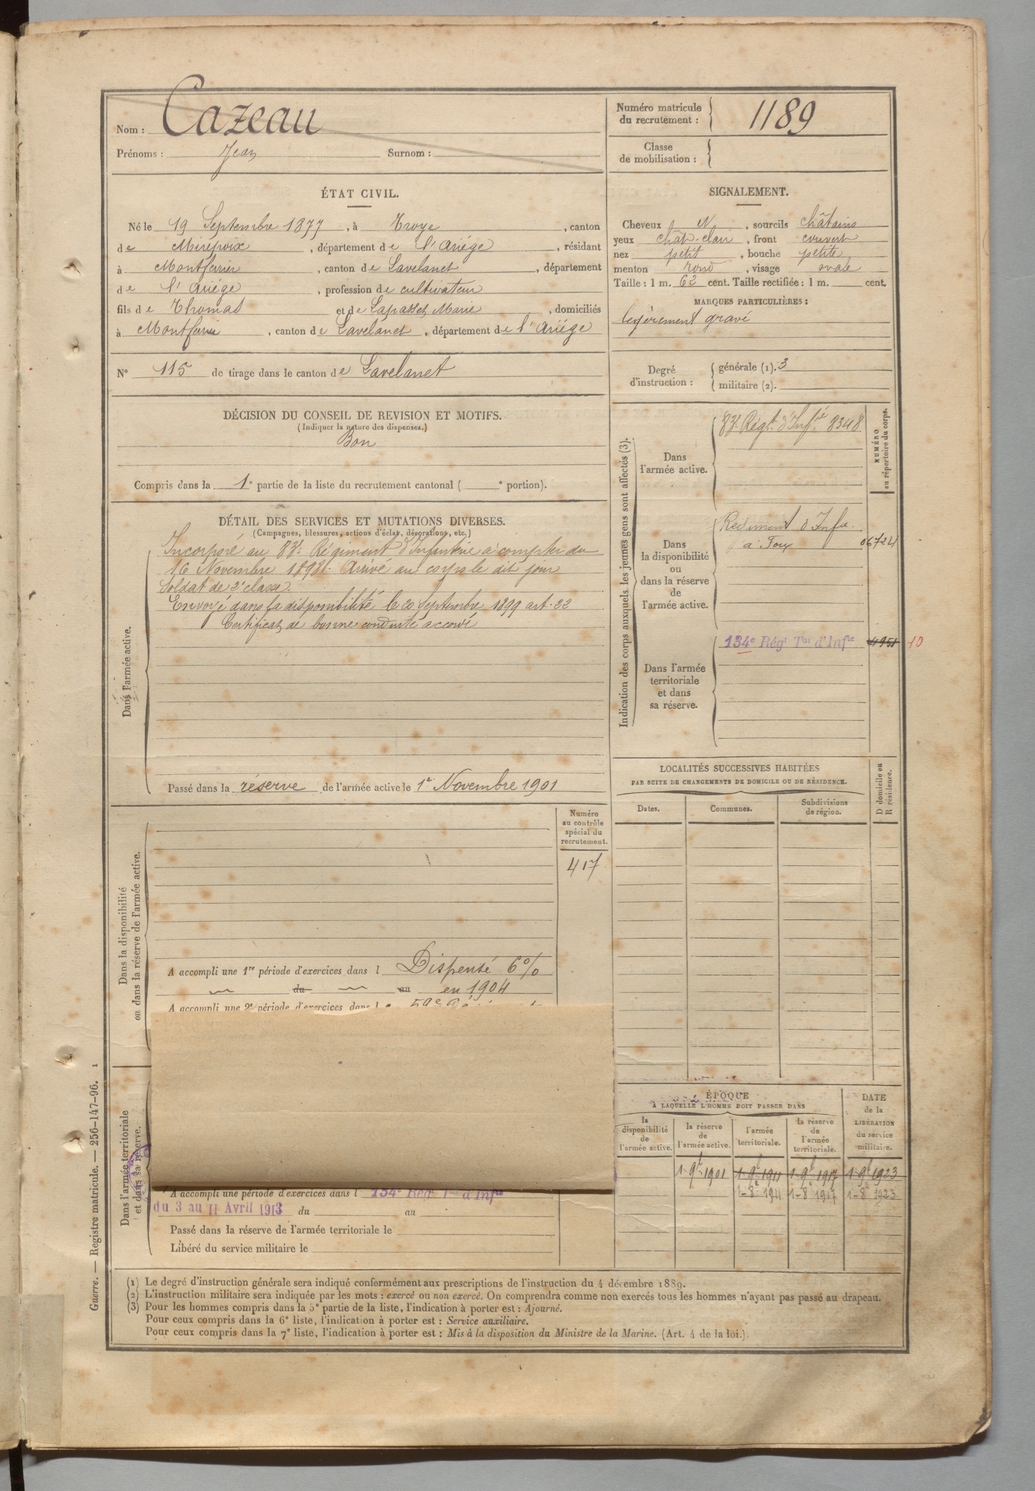 Nom : Cazeau
Prénoms : Jean Surnom :
Numéro matricule du recrutement : 1189
Classe de mobilisation :
ÉTAT CIVIL.
Né le 19 Septembre 1877, à Troye, canton
de Mirepoix, département de l'Ariège, résidant
à Montferrier, canton de Lavelanet, département
de l'Ariège, profession de cultivateur
fils de Thomas et de Lapasset Marie, domiciliés
à Montferrier, canton de Lavelanet, département de l'Ariège
N° 115 de tirage dans le canton de Lavelanet
SIGNALEMENT.
Cheveux N, sourcils châtains
yeux chât. clair, front couvert
nez petit, bouche petite
menton rond, visage ovale
Taille : 1 m. 62 cent. Taille rectifiée : 1 m. cent.
MARQUES PARTICULIÈRES :
légèrement gravé
Degré d'instruction : générale (1). 3
militaire (2).
DÉCISION DU CONSEIL DE REVISION ET MOTIFS.
(Indiquer la nature des dispenses.)
Bon
Compris dans la 1e partie de la liste du recrutement cantonal ( e portion).
DÉTAIL DES SERVICES ET MUTATIONS DIVERSES.
(Campagnes, blessures, actions d'éclat, décorations, etc.)
Dans l'armée active.
Incorporé au 83e Régiment d'Infanterie à compter du
16 Novembre 1898. Arrivé au corps le dit jour
Soldat de 2e classe
Envoyé dans la disponibilité le 20 Septembre 1899 art. 22
Certificat de bonne conduite accordé
Passé dans la réserve de l'armée active le 1er Novembre 1901
Indication des corps auxquels les jeunes gens sont affectés (3).
NUMÉRO au répertoire du corps.
Dans l'armée active.
83e Régt d'Infie 8348
Dans la disponibilité ou dans la réserve de l'armée active.
Régiment d'Infie
à Foix 06724
Dans l'armée territoriale et dans sa réserve.
134e Régt Tal d'Infie 10
LOCALITÉS SUCCESSIVES HABITÉES
PAR SUITE DE CHANGEMENTS DE DOMICILE OU DE RÉSIDENCE.
Dates. Communes. Subdivisions de région. D domicile ou R résidence.
Dans la disponibilité ou dans la réserve de l'armée active.
Numéro au contrôle spécial du recrutement.
417
A accompli une 1re période d'exercices dans l Dispensé 6%
du au en 1904
A accompli une 2e période d'exercices dans le 59e
Dans l'armée territoriale et dans sa réserve.
A accompli une période d'exercices dans l 134e Régt Tal d'Infie
du 3 au 11 Avril 1913 du au
Passé dans la réserve de l'armée territoriale le
Libéré du service militaire le
ÉPOQUE
À LAQUELLE L'HOMME DOIT PASSER DANS
DATE de la LIBÉRATION du service militaire.
la disponibilité de l'armée active. la réserve de l'armée active. l'armée territoriale. la réserve de l'armée territoriale.
1-9b 1901 1-9b 1911 1-9b 1917 1-9b 1923
1-8 1911 1-8 1917 1-8 1923
(1) Le degré d'instruction générale sera indiqué conformément aux prescriptions de l'instruction du 4 décembre 1889.
(2) L'instruction militaire sera indiquée par les mots : exercé ou non exercé. On comprendra comme non exercés tous les hommes n'ayant pas passé au drapeau.
(3) Pour les hommes compris dans la 5e partie de la liste, l'indication à porter est : Ajourné.
Pour ceux compris dans la 6e liste, l'indication à porter est : Service auxiliaire.
Pour ceux compris dans la 7e liste, l'indication à porter est : Mis à la disposition du Ministre de la Marine. (Art. 4 de la loi.)
Guerre. — Registre matricule. — 256-147-96. 1